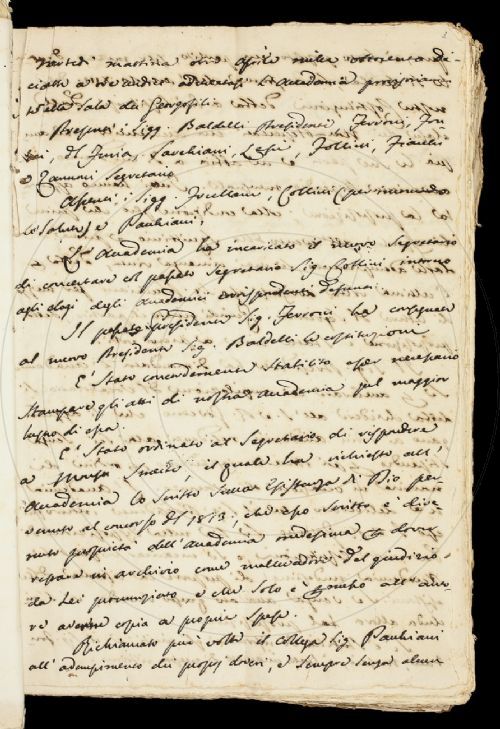 mattina otto Aprile mille ottocento di-
ciotto a ore undici adunatasi l'Accademia
nella Sala dei Georgofili
Presenti i Sigg. Baldelli Presidente, Ferroni, Fon
Del Furia, Sarchiani, Lessi, Follini, Fiacchi
e Zannoni Segretario
Assenti i Sigg. Collini (per incomodo
di salute) e
L'Accademia ha incaricato il nuovo Segretario
di concertare col passato Segretario Sig. Collini intorno
agli elogi degli Accademici corrispondenti defunti.
Il passato presidente Sig. Ferroni ha consegnato
al nuovo Presidente Sig. Baldelli le costituzioni
È stato concordemente stabilito esser necessario
stampare gli atti di nostra accademia pel maggior
lustro di essa.
È stato ordinato al Segretario di rispondere
a il quale ha richiesto all'
Accademia lo scritto Sulla Esistenza di Dio per-
venuto al concorso del 1813; che esso scritto è dive-
nuto proprietà dell'Accademia medesima e dover
restare in archivio come del giudizio
da lei pronunziato e che solo è all'auto-
re averne copia a proprie spese.
Richiamato più volte il collega Sig.
all'adempimento dei proprj doveri, e sempre senza alcun